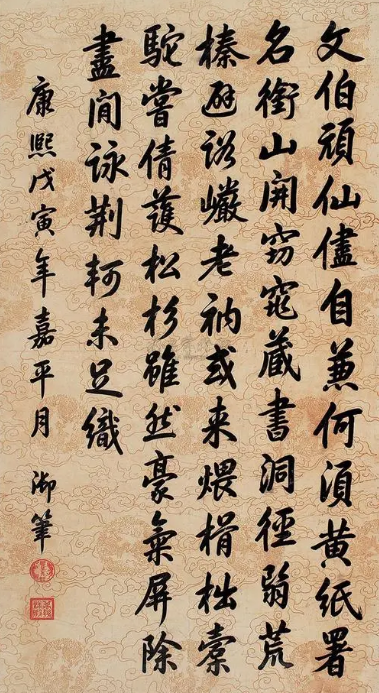 文伯頑仙儘自兼何須黃紙署
名銜山開窈窕藏書洞徑翦荒
榛巖老衲或来煨榾柮橐
駝嘗倩護松杉雖然豪氣屏除
盡閒詠荊軻未足緘
康熙戊寅年嘉平月 御筆